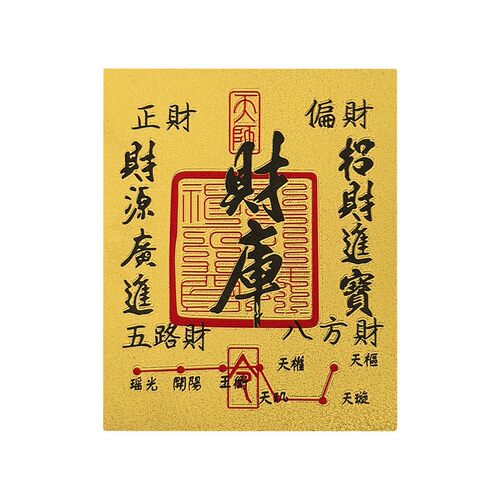 天師
正財
偏財
財源廣進
財庫
招財進寶
五路財
八方財
天權
天樞
瑶光
開陽
玉衡
令
天璣
天璇